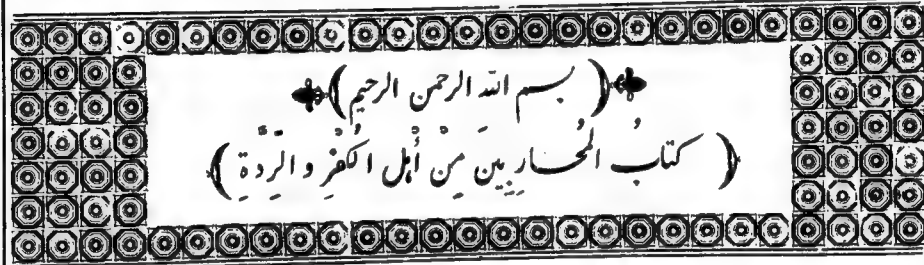 ﴿ بسم الله الرحمن الرحيم ﴾
﴿ كتابُ المُحاربِينَ مِنْ أَهْلِ الكُفْرِ والرِّدَّةِ ﴾